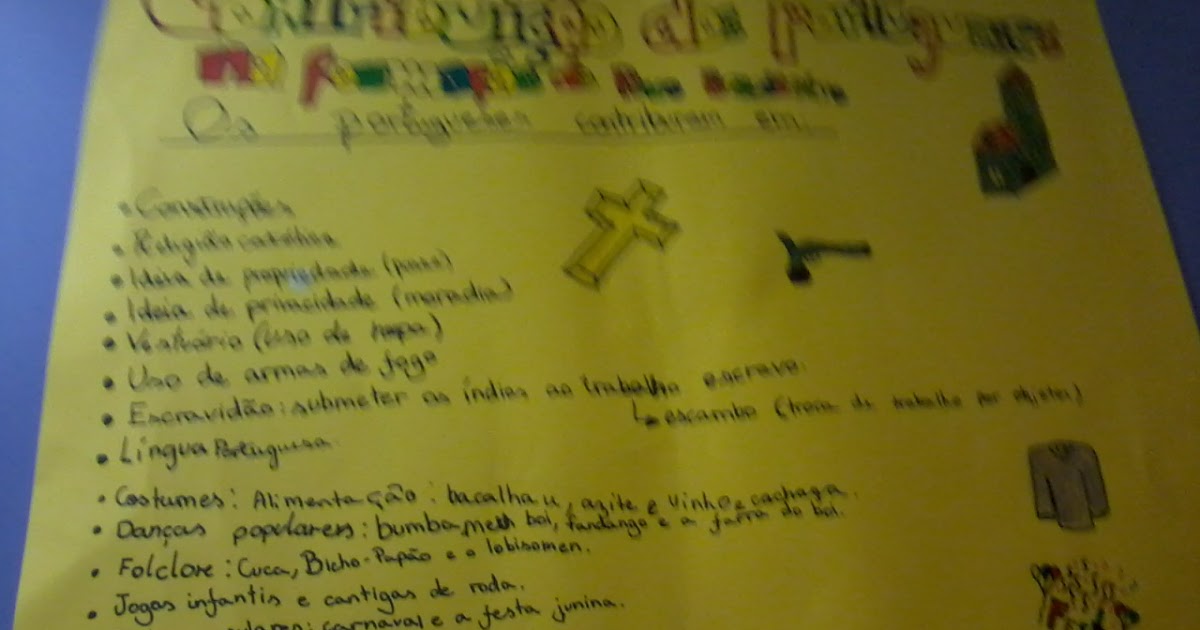 Contribuição dos portugueses
na formação do Povo Brasileiro
Os portugueses contribuíram em:
• Construções
• Religião católica
• Ideia de propriedade (posse)
• Ideia de privacidade (moradia)
• Vestuário (uso de roupa)
• Uso de armas de fogo
• Escravidão: submeter os índios ao trabalho escravo.
↳ escambo (troca de trabalho por objetos)
• Língua Portuguesa
• Costumes: Alimentação: bacalhau, azite e vinho e cachaça.
• Danças populares: bumba meu boi, fandango e a farra do boi.
• Folclore: Cuca, Bicho-Papão e o lobisomen.
• Jogos infantis e cantigas de roda.
carnaval e a festa junina.